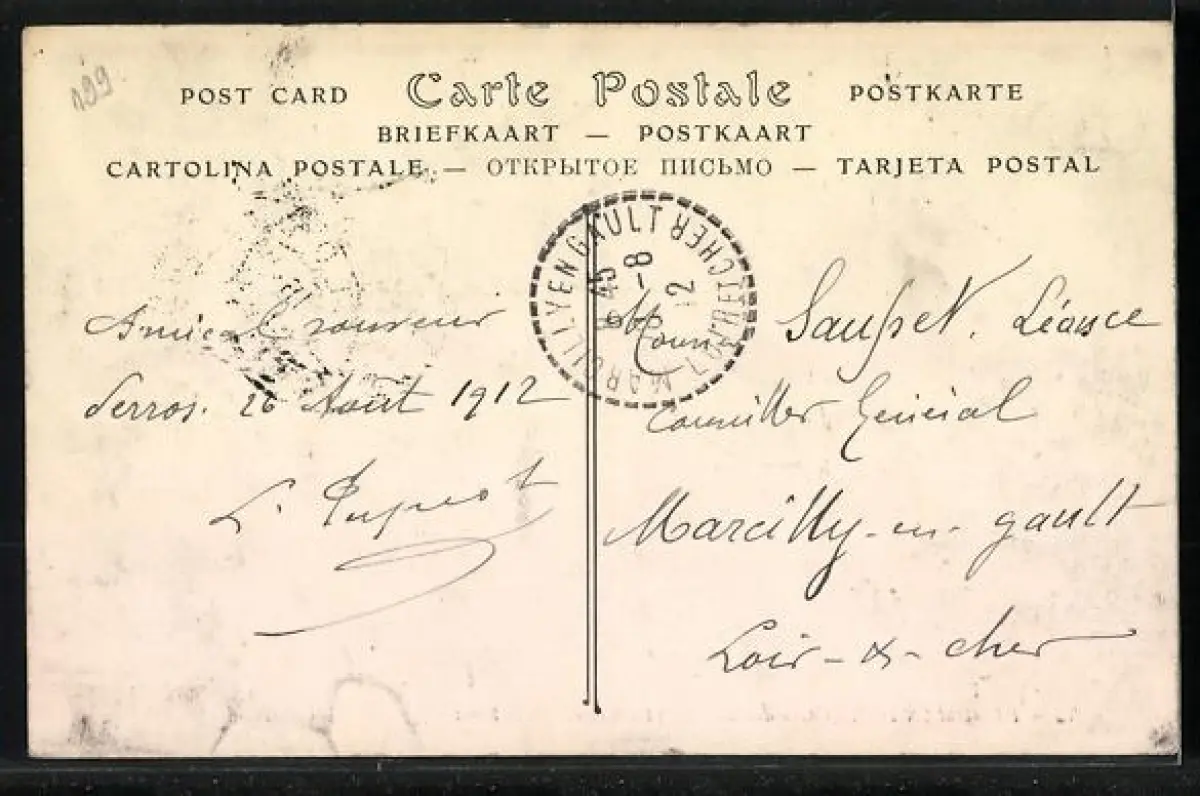 199
POST CARD Carte Postale POSTKARTE
BRIEFKAART — POSTKAART
CARTOLINA POSTALE — ОТКРЫТОЕ ПИСЬМО — TARJETA POSTAL
MARCILLY EN GAULT LOIR ET CHER
45
-8
12
Amical souvenir
Perros. 26 Août 1912
L.
Léonce
Conseiller Général
Marcilly-en-gault
Loir-&-cher